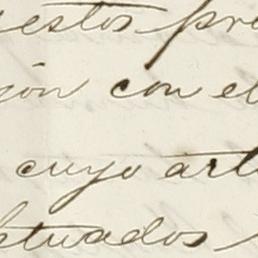 estos pre
ión con el
cuyo art
ptuados